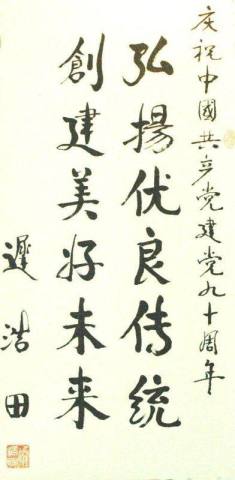 庆祝中國共产党建党九十周年
弘揚优良传统
創建美好未来
遲浩田